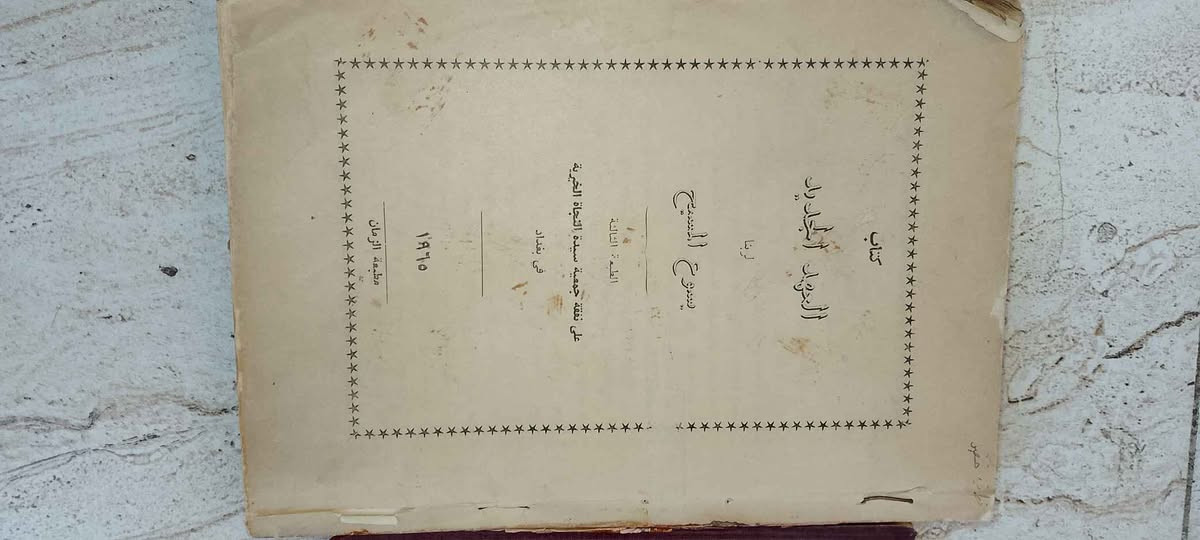 كتاب
البخويك الجاديك
لربنا
يسوع المسيح
الطبعة الثالثة
على نفقة جمعية سيدة النجاة الخيرية
في بغداد
١٩٦٥
مطبعة الزمان